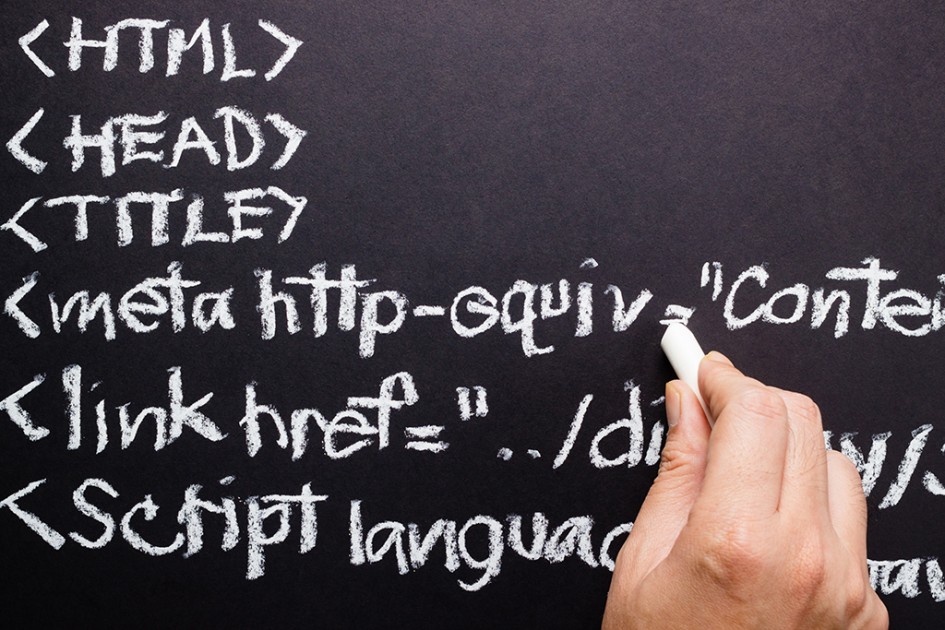 <HTML>
<HEAD>
<TITLE>
<meta http-equiv="Conte
<link href=" ../di
<Script